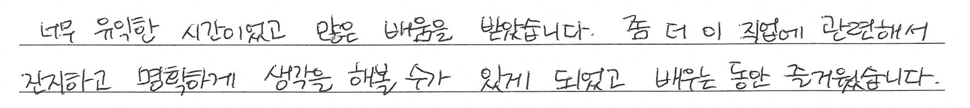 너무 유익한 시간이었고 많은 배움을 받았습니다. 좀 더 이 직업에 관련해서
진지하고 명확하게 생각을 해볼 수가 있게 되었고 배우는 동안 즐거웠습니다.